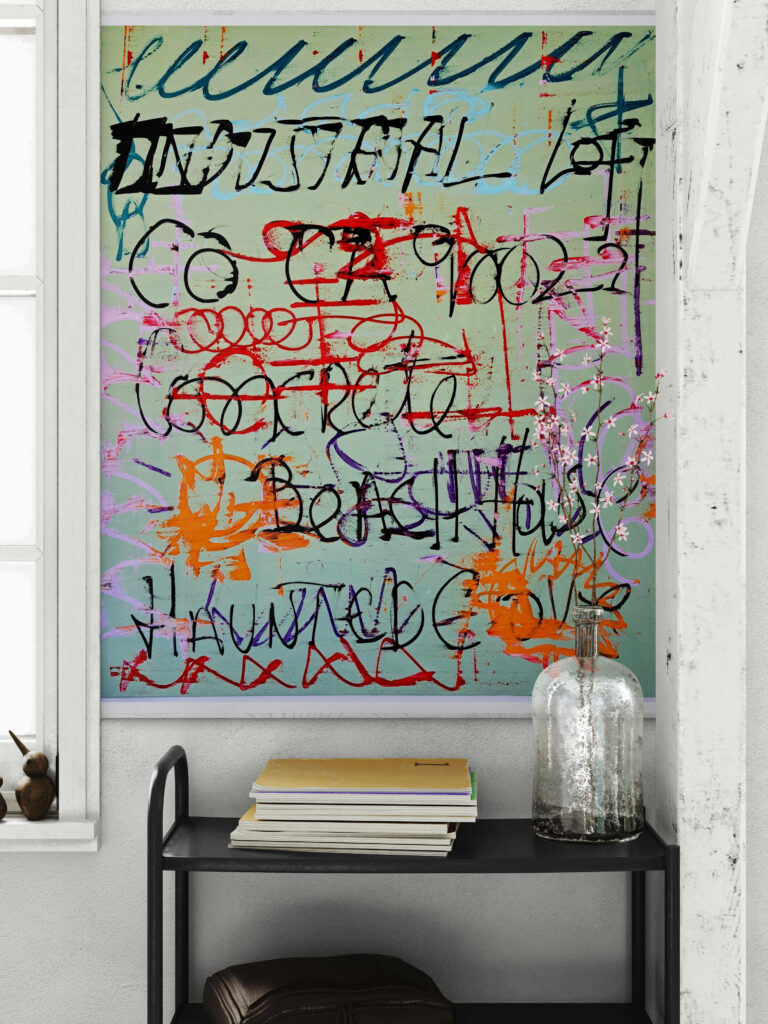 INDUSTRIAL Loft
Co CA 90022
Concrete
House
HAUNTED